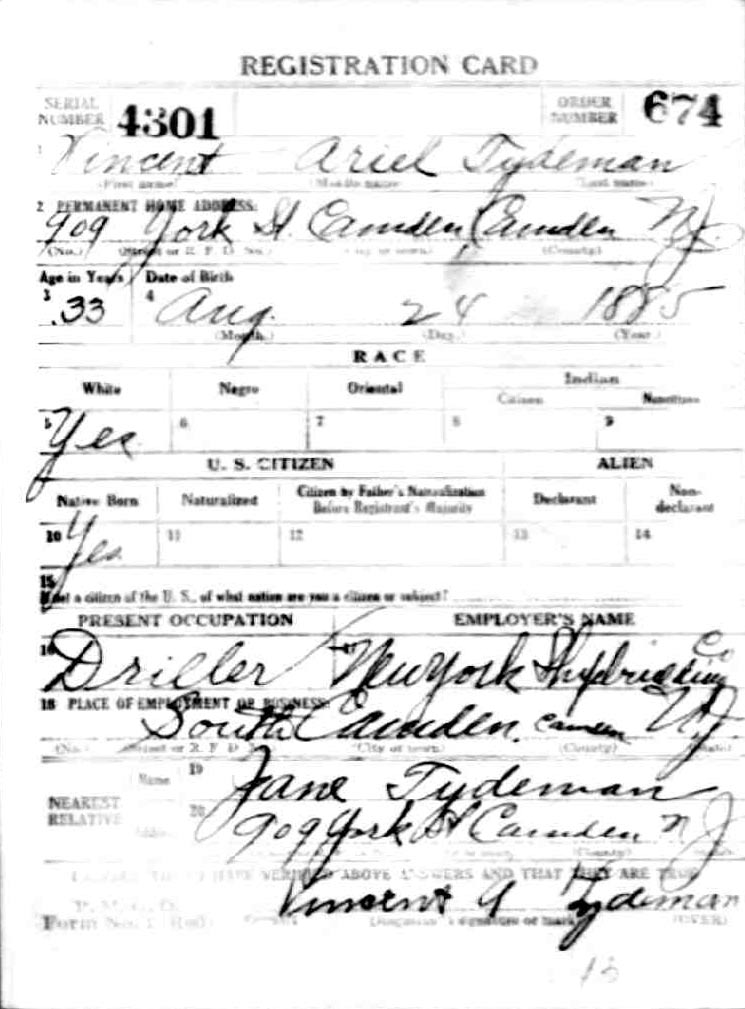 REGISTRATION CARD
SERIAL NUMBER 4301 ORDER NUMBER 674
1 Vincent Ariel Tydeman
(First name) (Middle name) (Last name)
2 PERMANENT HOME ADDRESS:
909 York St. Camden Camden NJ.
(No.) (Street or R. F. D. No.) (City or town) (County)
Age in Years Date of Birth
3 33 4 Aug. 24 1885
(Month.) (Day.) (Year.)
RACE
White Negro Oriental Indian
Citizen Noncitizen
5 Yes 6 7 8 9
U. S. CITIZEN ALIEN
Native Born Naturalized Citizen by Father's Naturalization Before Registrant's Majority Declarant Non-declarant
10 Yes 11 12 13 14
15
If not a citizen of the U. S., of what nation are you a citizen or subject?
PRESENT OCCUPATION EMPLOYER'S NAME
16 Driller 17 New York Shipbuilding Co
18 PLACE OF EMPLOYMENT OR BUSINESS:
South Camden. Camden N.J
(No.) (Street or R. F. D. No.) (City or town) (County) (State)
NEAREST RELATIVE
Name 19 Jane Tydeman
Address 20 909 York St Camden N J
(County)
VERIFIED ABOVE ANSWERS AND THAT THEY ARE TRUE
P. M. G. O.
Form No. 1 (Red) Vincent A Tydeman
(Registrant's signature or mark) (OVER)
13